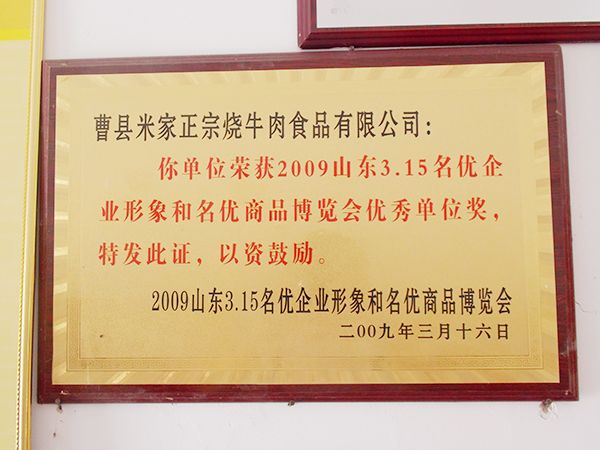 曹县米家正宗烧牛肉食品有限公司：
你单位荣获2009山东3.15名优企
业形象和名优商品博览会优秀单位奖，
特发此证，以资鼓励。
2009山东3.15名优企业形象和名优商品博览会
二00九年三月十六日